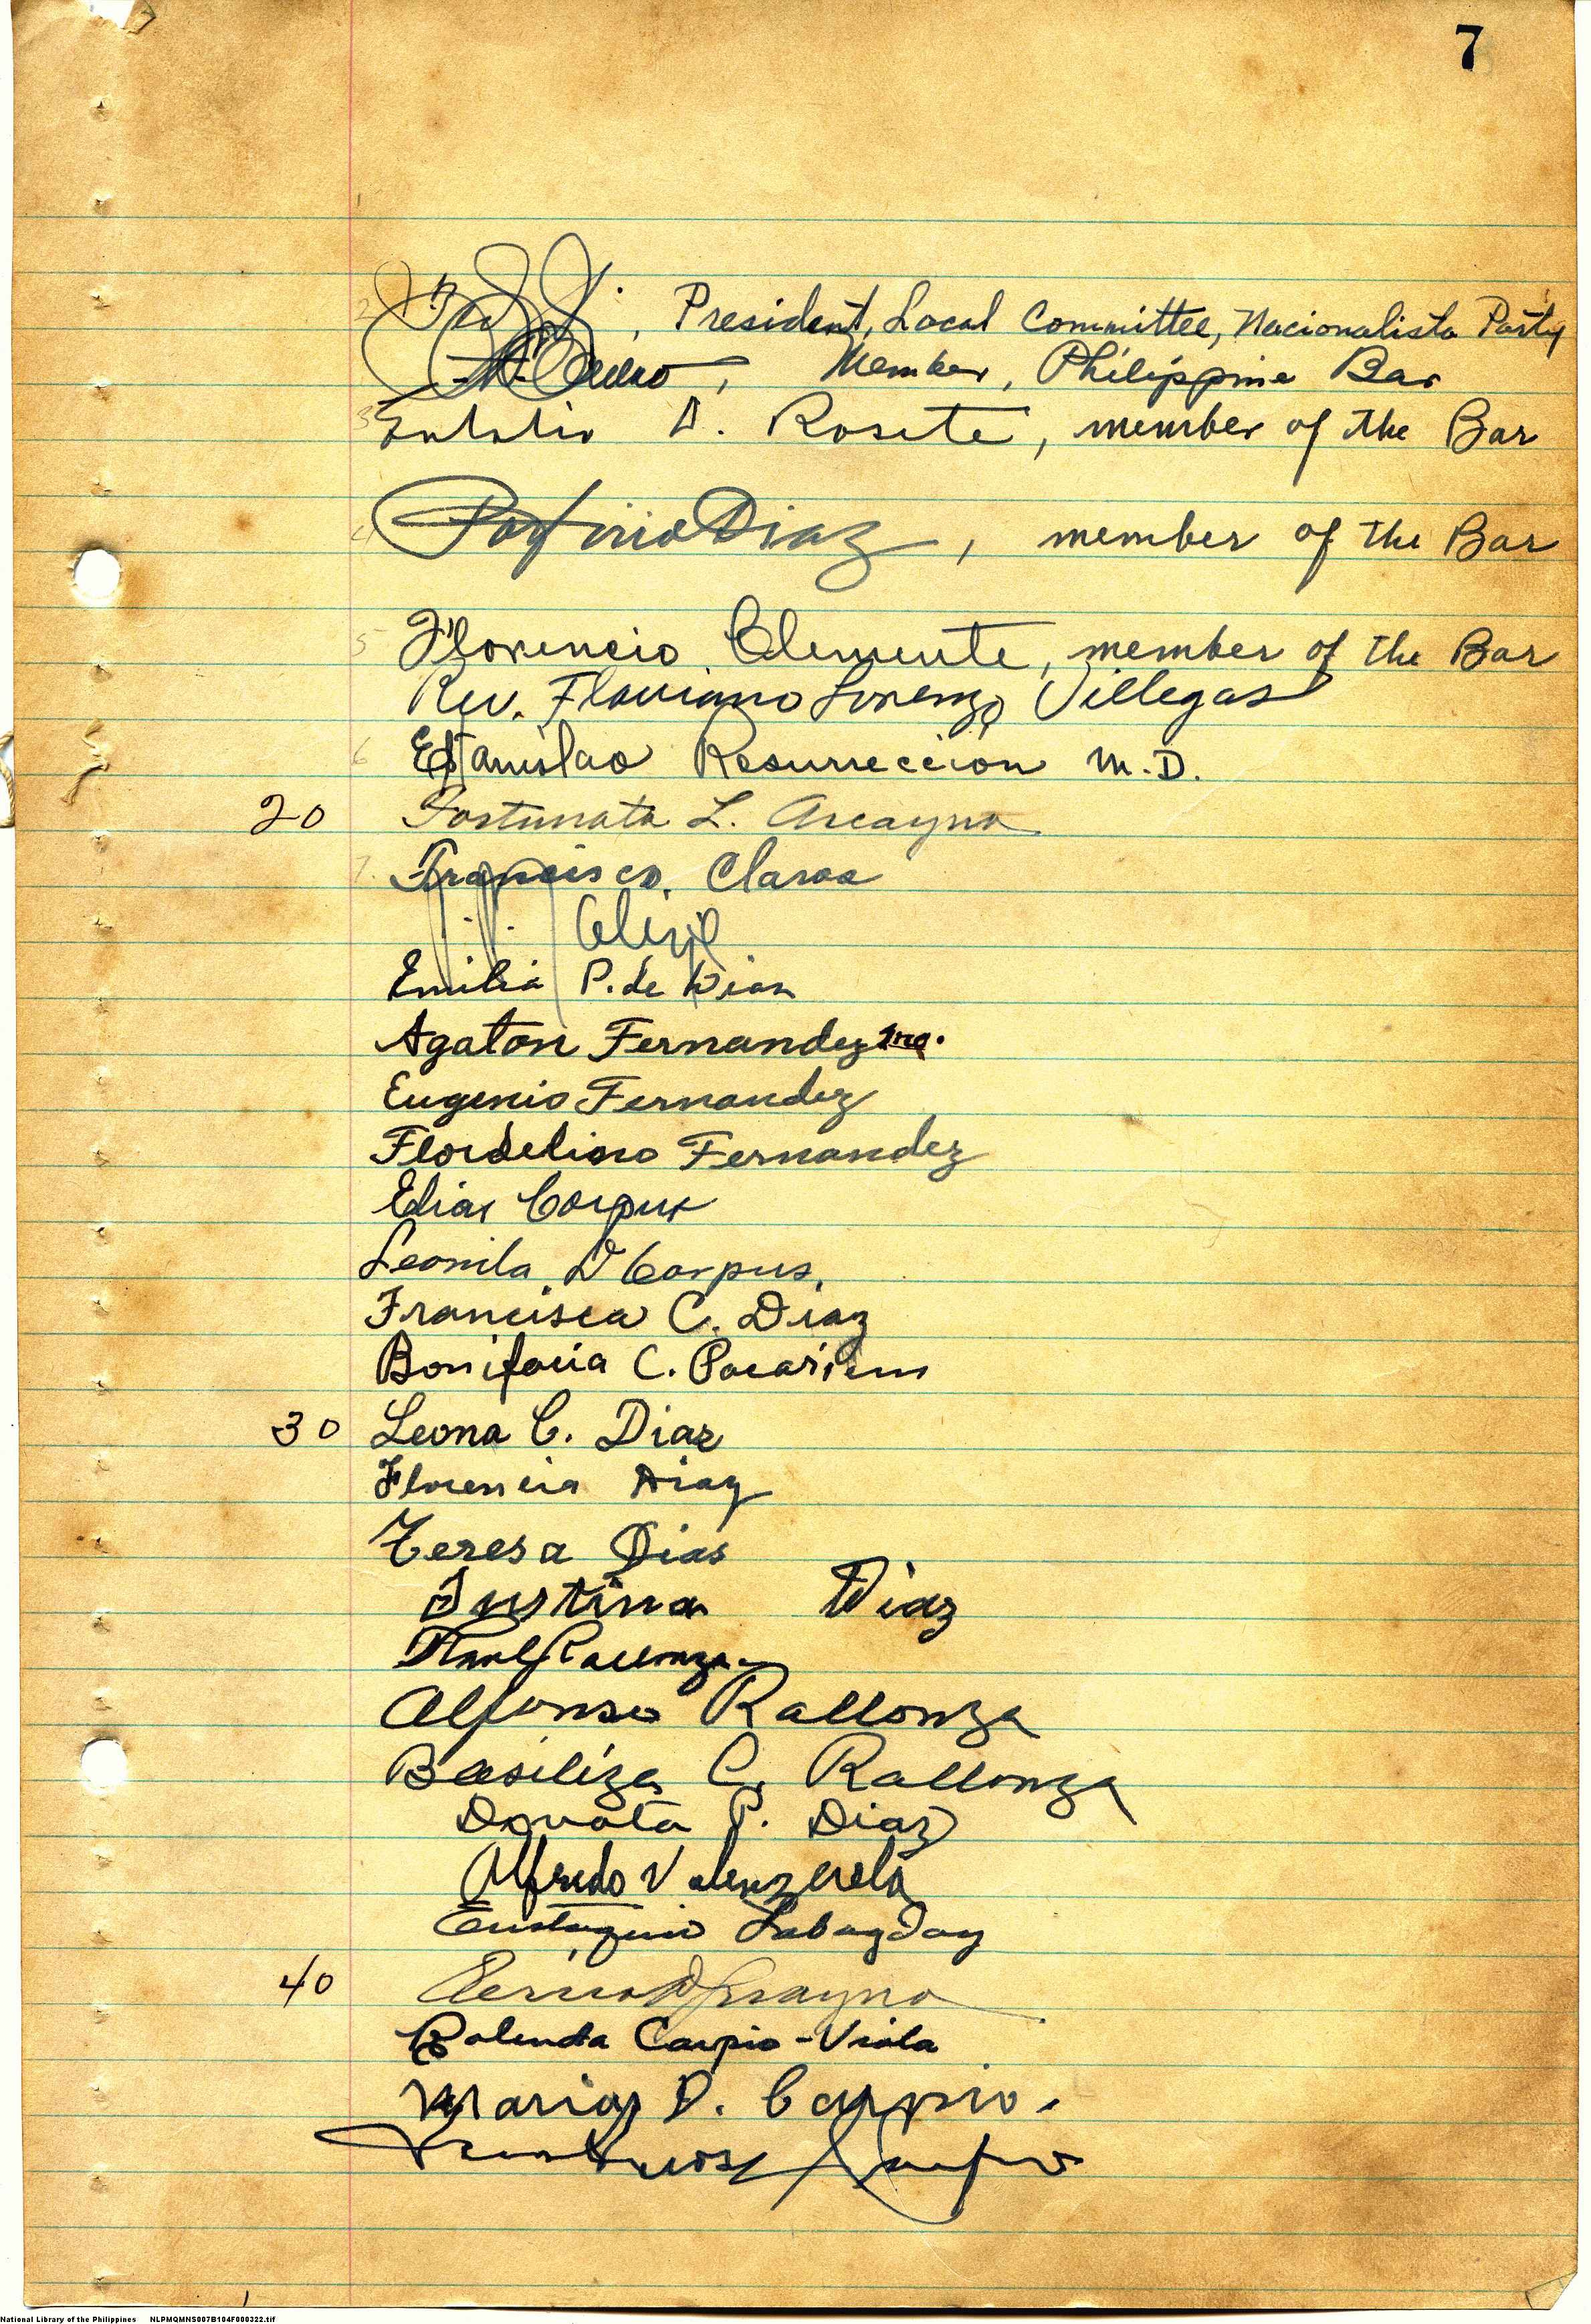 7
, President, Local Committee, Nacionalista Party
, Member, Philippine Bar
Eulalio D. Rosete, member of the Bar
Porfirio Diaz, member of the Bar
Florencio Clemente, member of the Bar
Rev. Flaviano Lorenzo Villegas
Estanislao Resurreccion M.D.
20 Fortunata L. Arcayna
Francisco Claros
Emilia P. de Dias
Agaton Fernandez
Eugenio Fernandez
Flordelino Fernandez
Elias Corpus
Leonila D Corpus.
Francisca C. Diaz
Bonifacia C. Pacariem
30 Leona C. Diaz
Florencia Diaz
Teresa Dias
Justina Diaz
Rallonza
Alfonso Rallonza
Basiliza C. Rallonza
Donata P. Diaz
Alfredo Valenzuela
Eustaquio Labagday
40
Rolenda Carpio-Viola
Maria D. Carpio.
National Library of the Philippines NLPMQMNS007B104F000322.tif